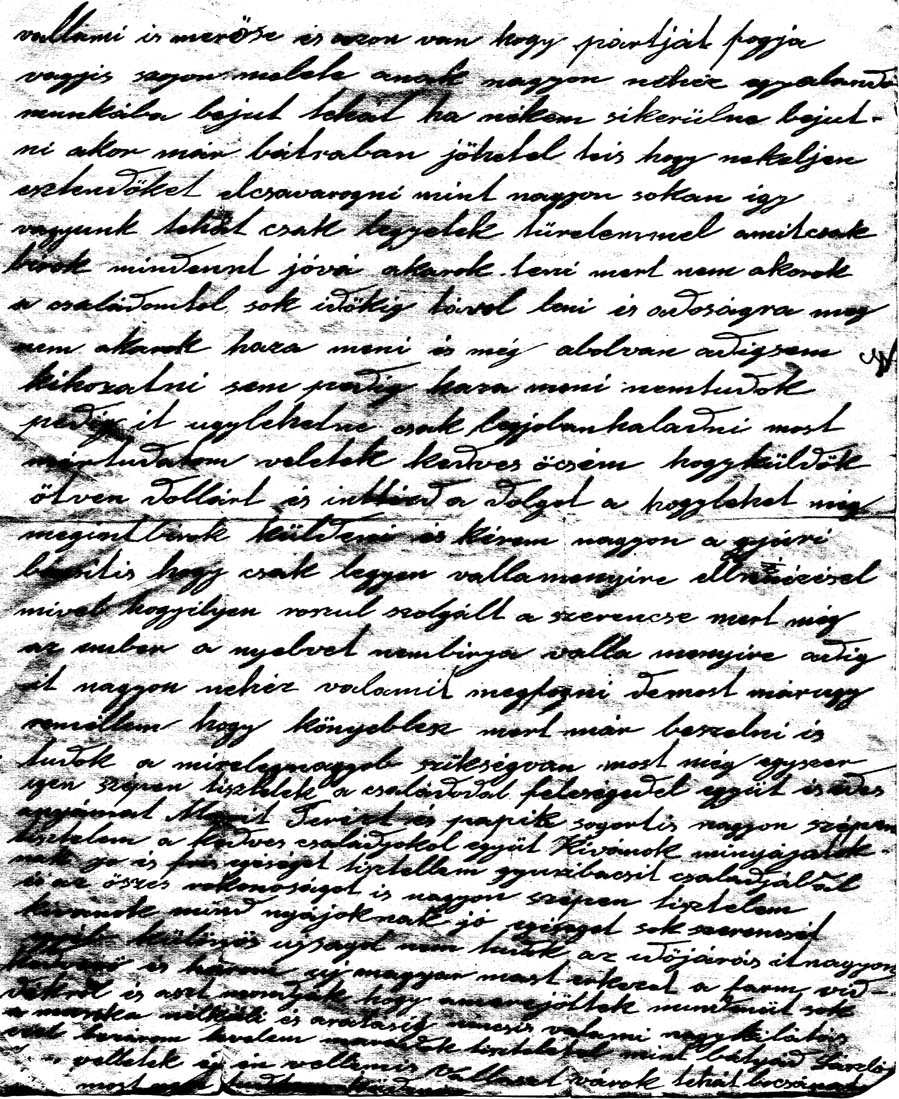 vallami is merőse is azon van hogy pártját fogja
vagyis sagon melete anak nagyon nehéz egyalandó
munkába bejut tehát ha nékem sikerülne bejut-
ni akor már bátraban jöhetel teis hogy nekeljen
esztendőket elcsavarogni mint nagyon sokan igy
vagyunk tehát csak legyetek türelemmel amitcsak
birok mindennt jóvá akarok teni mert nem akarok
a családomtol sok időkig távol leni is adoságra meg
nem akarok haza meni is még abolvan adigsem
kihozatni sem pedig haza meni nemtudok
pedig it ugylehetne csak legjobanhaladni most
mártudatom veletek kedves öcsém hogyküldök
ötven dollárt és intézd a dolgot a hogylehet még
megintbirok küldeni és kérem nagyon a gyuri
bácsitis hogy csak legyen vallamenyire elnézésel
mivel hogyilyen roszul szolgált a szerencse mert még
az ember a nyelvet nembirja valla menyire adig
it nagyon nehéz valamit megfogni demost márugy
reméllem hogy könyebblesz mert már beszelni is
tudok a mirelegnagyob szükségvan most még egyszer
igen szépen tisztelek a családodal feleségedel együt is édes
anyámat Terizt és papik sogortis nagyon szépen
tisztelem a kedves családjokol együt Kivánok minyájatok-
nak jo is friss egéséget tisztellem gyuribacsit családjával
is az öszes rokonoságot is nagyon szépen tisztelem
kivánok mind nyájoknak jó egéséget sok szerencsét
különös ujságot nem tudok az időjárás itnagyon
is három uj magyar most érkezet a farm vid-
ékről is aszt mondják hogy amerejöttek mindenüt sok
a munka nélküli és aratásig nincsis valami nagykilátás
ezel bezárom levelem maradok tisztelettel mint bátyád László
velletek is én vellemis Vallaszt várok tehát bocsánat
most nem tudtam